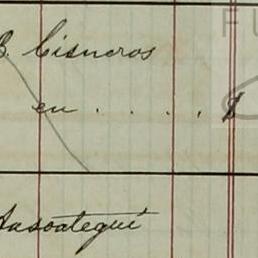 B. Cisneros
en . . . . $
Ansoategui